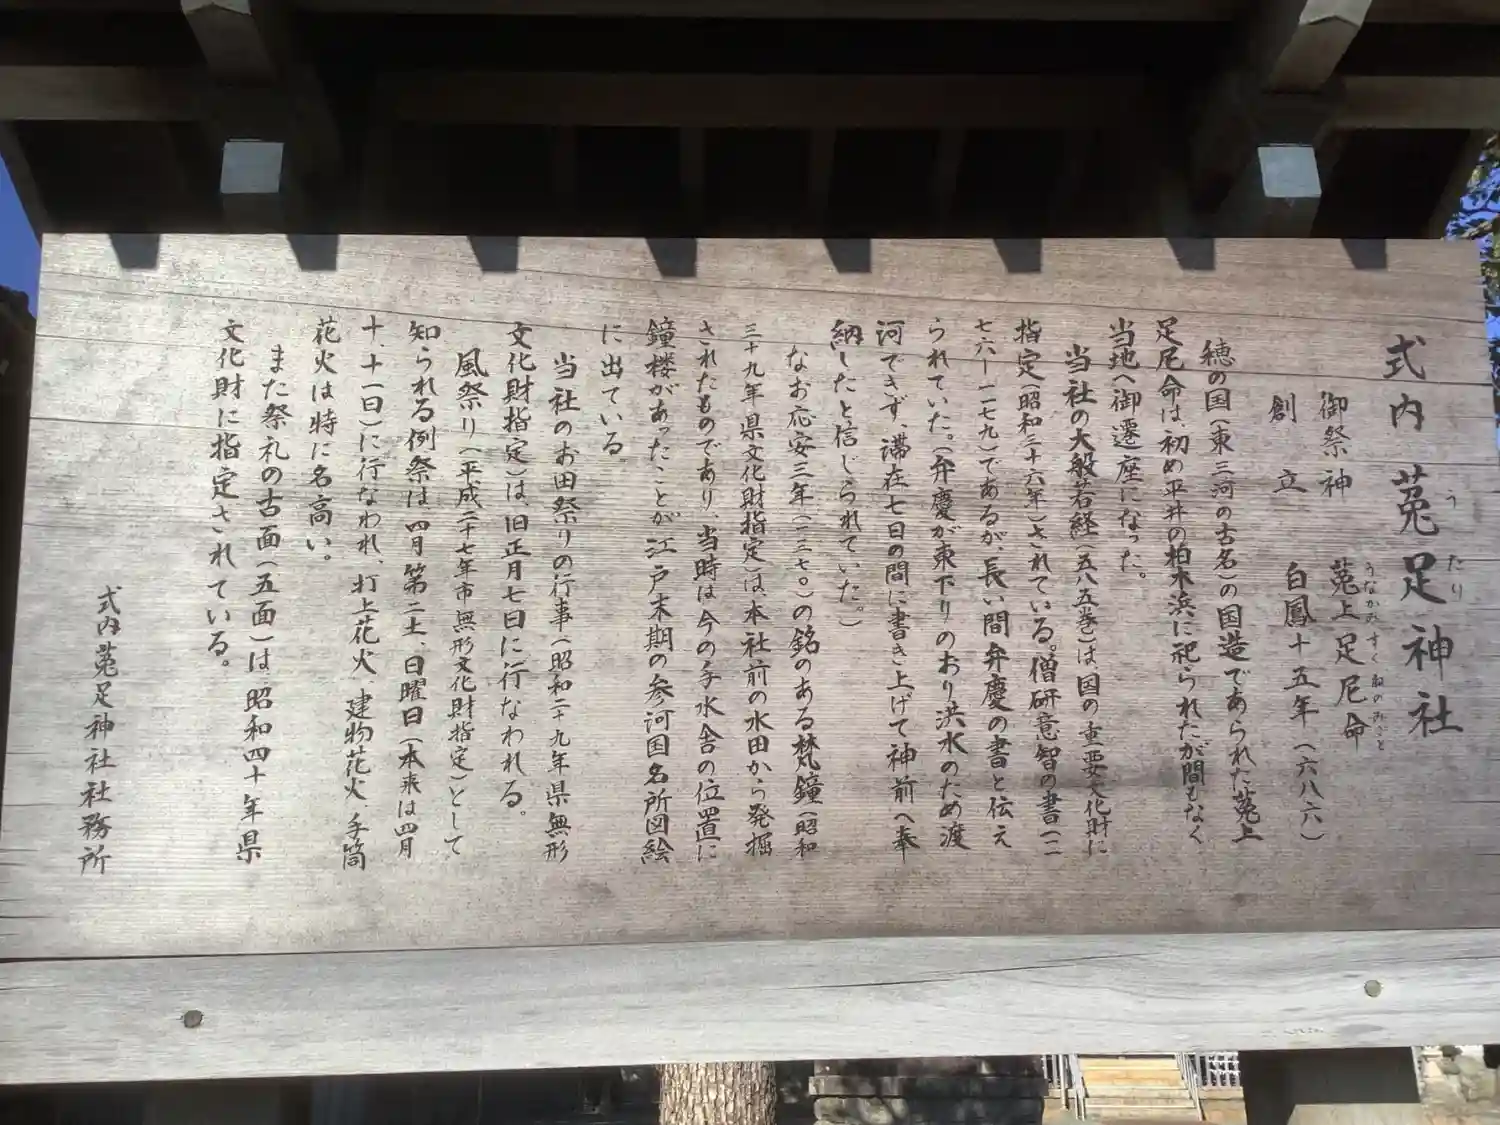 式内 菟足神社
う たり
御祭神 菟上足尼命
うなかみすくねのみこと
創立 白鳳十五年(六八六)
穂の国(東三河の古名)の国造であられた菟上
足尼命は、初め平井の柏木浜に祀られたが間もなく
当地へ御遷座になった。
当社の大般若経(五八五巻)は国の重要文化財に
指定(昭和三十六年)されている。僧研意智の書(一一
七六ー一一七九)であるが、長い間弁慶の書と伝え
られていた。(弁慶が東下りのおり洪水のため渡
河できず、滞在七日の間に書き上げて神前へ奉
納したと信じられていた。)
なお応安三年(一三七〇)の銘のある梵鐘(昭和
三十九年県文化財指定)は、本社前の水田から発掘
されたものであり、当時は今の手水舎の位置に
鐘楼があったことが江戸末期の参河国名所図絵
に出ている。
当社のお田祭りの行事(昭和二十九年県無形
文化財指定)は旧正月七日に行なわれる。
風祭り(平成二十七年市無形文化財指定)として
知られる例祭は四月第二土、日曜日(本来は四月
十、十一日)に行なわれ、打上花火、建物花火、手筒
花火は特に名高い。
また祭礼の古面(五面)は、昭和四十年県
文化財に指定されている。
式内菟足神社社務所